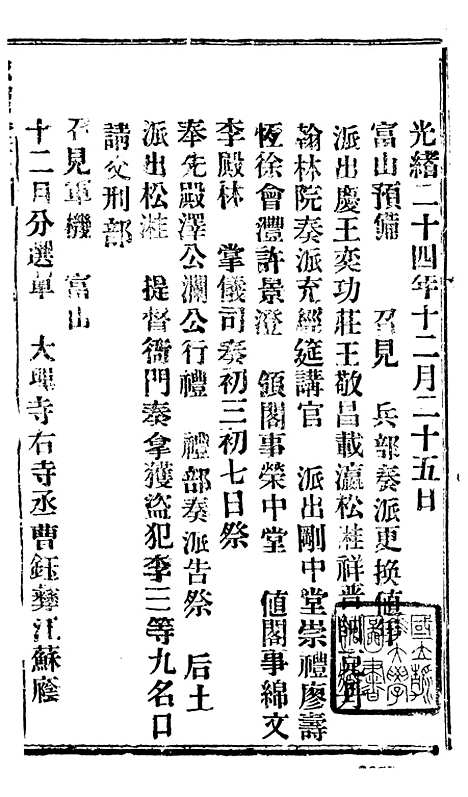 光緒二十四年十二月二十五日
富山預備　召見　兵部奏派更換値班
派出慶王奕功莊王敬昌載瀛松溎祥普
翰林院奏派充經筵講官　派出剛中堂崇禮廖壽
恆徐會灃許景澄　領閣事榮中堂　値閣事綿文
李殿林　掌儀司奏初三初七日祭
奉先殿澤公瀾公行禮　禮部奏派告祭　后土
派出松溎　提督衙門奏拿獲盜犯李二等九名口
請交刑部
召見軍機　富山
十二月分選單　大理寺右寺丞曹鈺彝江蘇廕
國立
大學
圖書